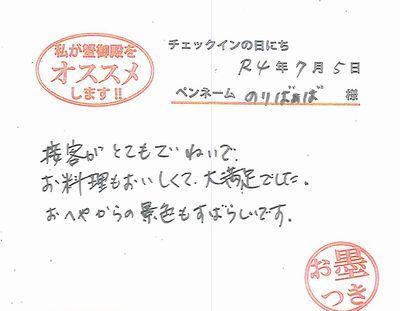 私が蟹御殿を
オススメ
します!!
チェックインの日にち
R4年7月5日
ペンネーム のりばぁば 様
接客がとてもていねいで、
お料理もおいしくて、大満足でした。
おへやからの景色もすばらしいです。
お墨
つき